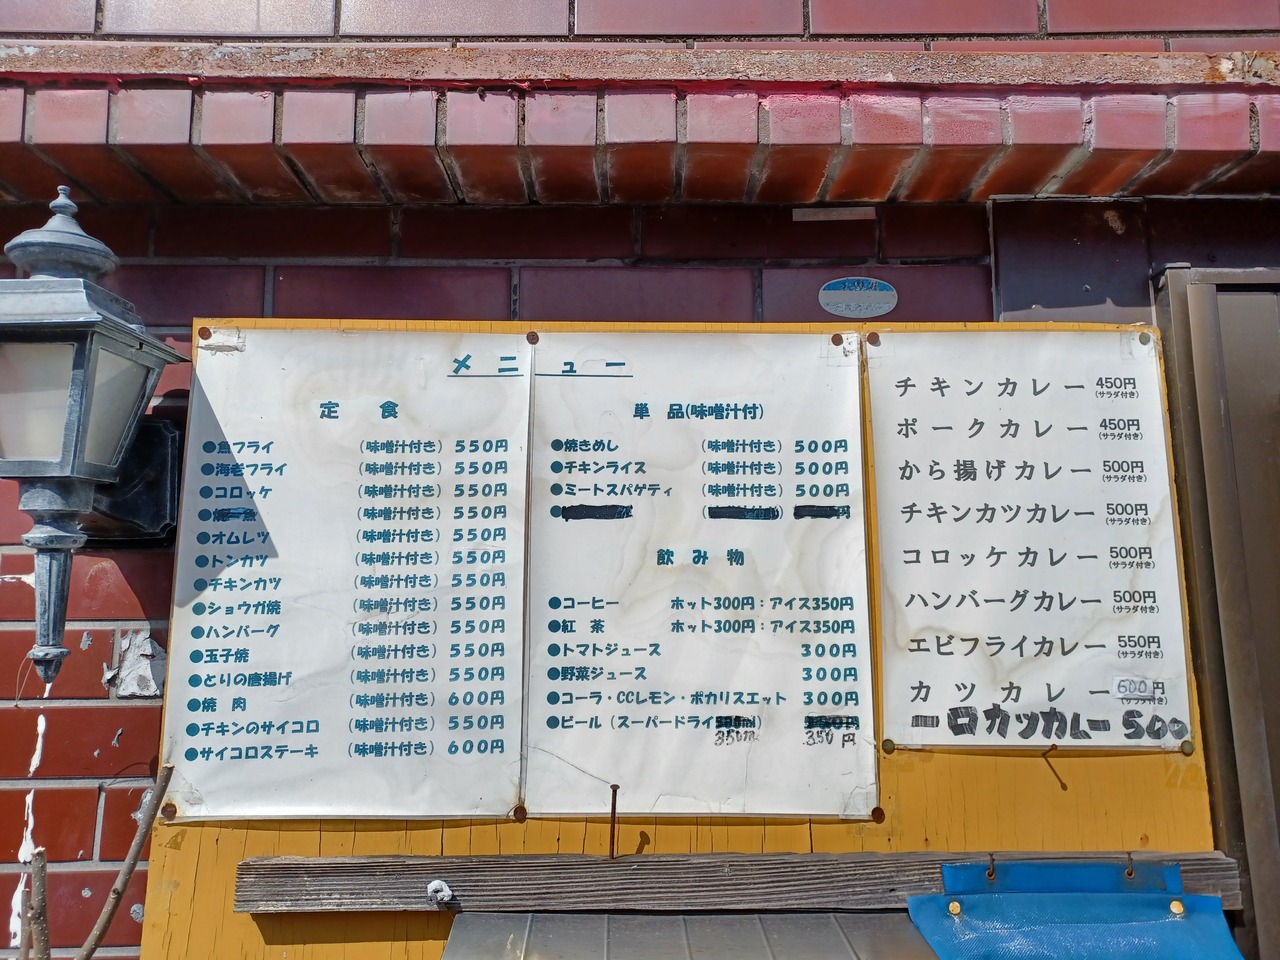 メニュー
定食
●魚フライ （味噌汁付き） 550円
●海老フライ （味噌汁付き） 550円
●コロッケ （味噌汁付き） 550円
●焼魚 （味噌汁付き） 550円
●オムレツ （味噌汁付き） 550円
●トンカツ （味噌汁付き） 550円
●チキンカツ （味噌汁付き） 550円
●ショウガ焼 （味噌汁付き） 550円
●ハンバーグ （味噌汁付き） 550円
●玉子焼 （味噌汁付き） 550円
●とりの唐揚げ （味噌汁付き） 550円
●焼肉 （味噌汁付き） 600円
●チキンのサイコロ （味噌汁付き） 550円
●サイコロステーキ （味噌汁付き） 600円
単品(味噌汁付)
●焼きめし （味噌汁付き） 500円
●チキンライス （味噌汁付き） 500円
●ミートスパゲティ （味噌汁付き） 500円
飲み物
●コーヒー ホット300円：アイス350円
●紅茶 ホット300円：アイス350円
●トマトジュース 300円
●野菜ジュース 300円
●コーラ・CCレモン・ポカリスエット 300円
●ビール（スーパードライ
350ml 350円
チキンカレー 450円
（サラダ付き）
ポークカレー 450円
（サラダ付き）
から揚げカレー 500円
（サラダ付き）
チキンカツカレー 500円
（サラダ付き）
コロッケカレー 500円
（サラダ付き）
ハンバーグカレー 500円
（サラダ付き）
エビフライカレー 550円
（サラダ付き）
カツカレー 600円
（サラダ付き）
一口カツカレー 500